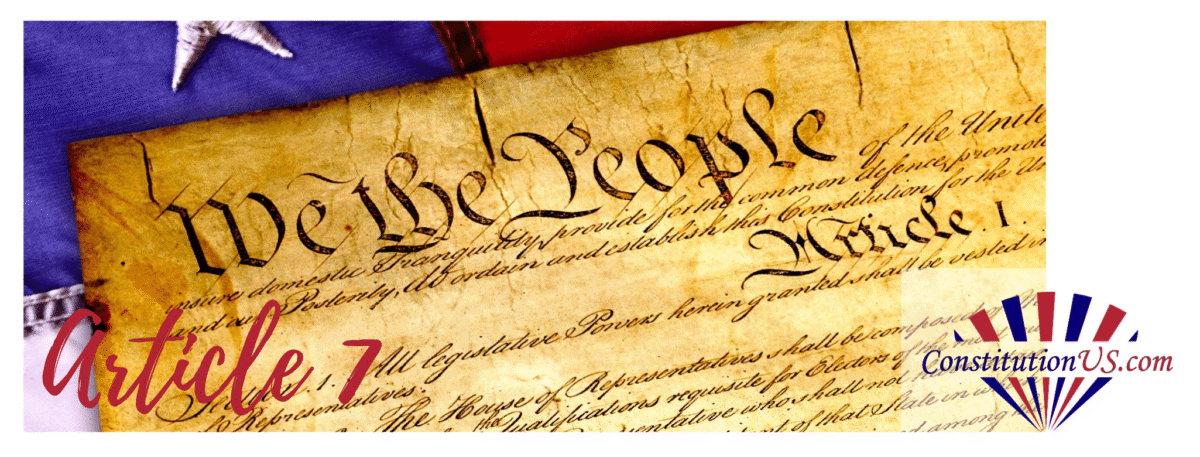 We the People of the Unite
insure domestic Tranquility, provide for the common defence, promote
and our Posterity, do ordain and establish this Constitution for the Un
Article. I.
Section. 1. All legislative Powers herein granted shall be vested in
of Representatives.
The House of Representatives shall be composed of
the Qualifications requisite for Electors of the most
Representative who shall not ha
nt of that State in w
among the
Article 7
ConstitutionUS.com